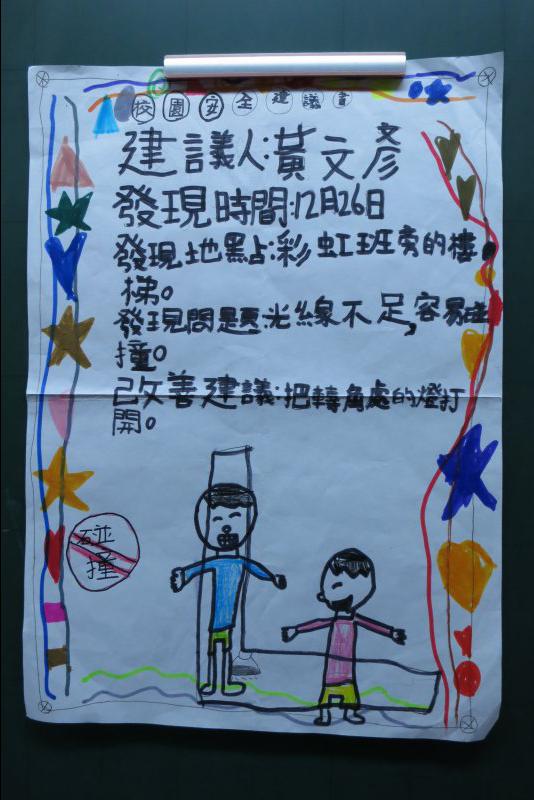 校園安全建議書
建議人:黃文彥
發現時間:12月26日
發現地點:彩虹班旁的樓
梯。
發現問題:光線不足,容易碰
撞。
改善建議:把轉角處的燈打
開。
碰
撞